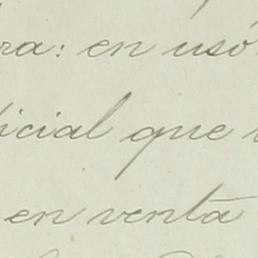 ra: en uso
icial que
en venta